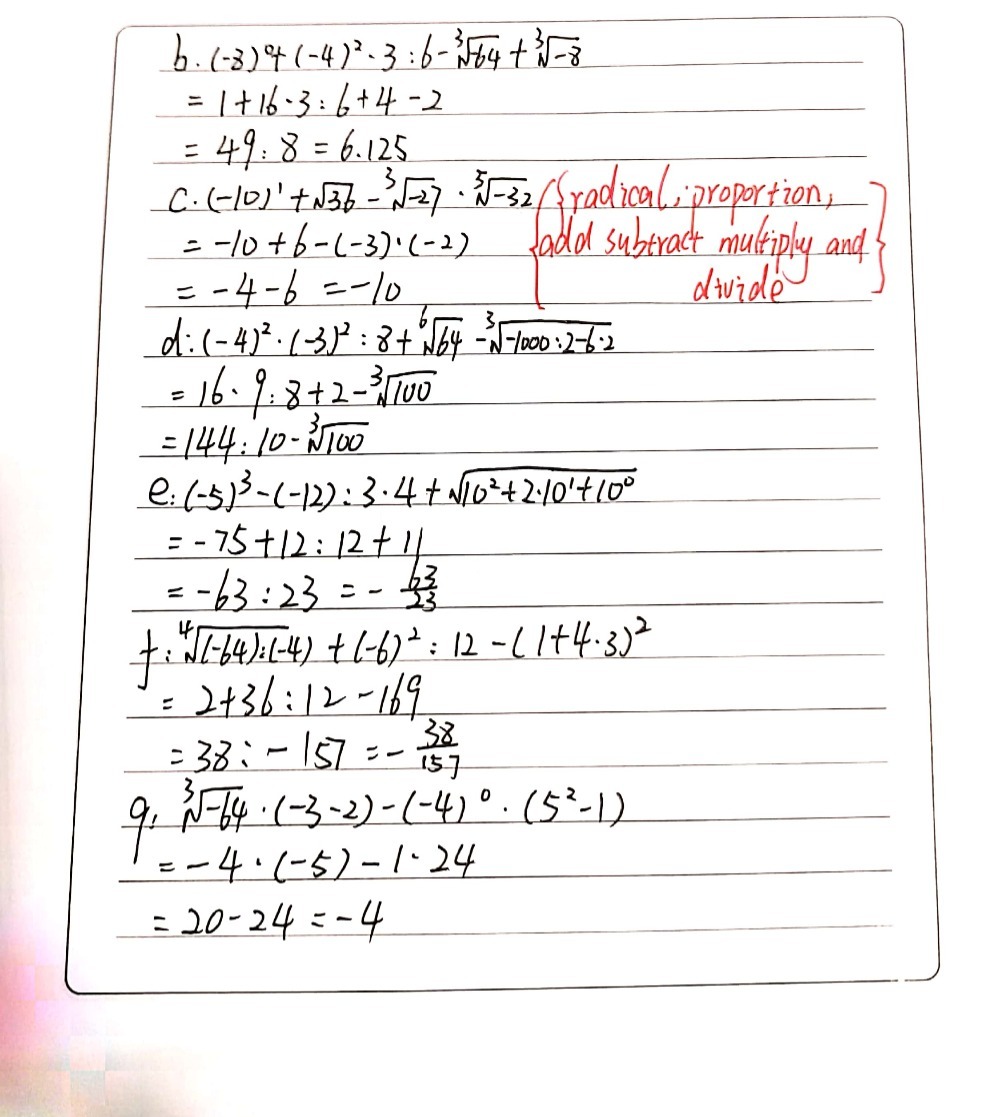 b. (-8)⁰+(-4)²·3:6-∛-64+∛-8
= 1+16·3:6+4-2
= 49:8=6.125
c.(-10)¹+√36-∛-27·⁵√-32
= -10+6-(-3)·(-2)
= -4-6 =-10
({radical, proportion,
add subtract multiply and
divide}
d:(-4)²·(-3)²:8+⁶√64-∛-1000:2-6·2
= 16·9:8+2-∛100
=144:10-∛100
e:(-5)³-(-12):3·4+√10²+2·10¹+10⁰
= -75+12:12+11
= -63:23 = -63/23
f:⁴√(-64):(-4)+(-6)²:12-(1+4·3)²
= 2+36:12-169
=38:-157=-38/157
g, ∛-64·(-3-2)-(-4)⁰·(5²-1)
=-4·(-5)-1·24
= 20-24=-4